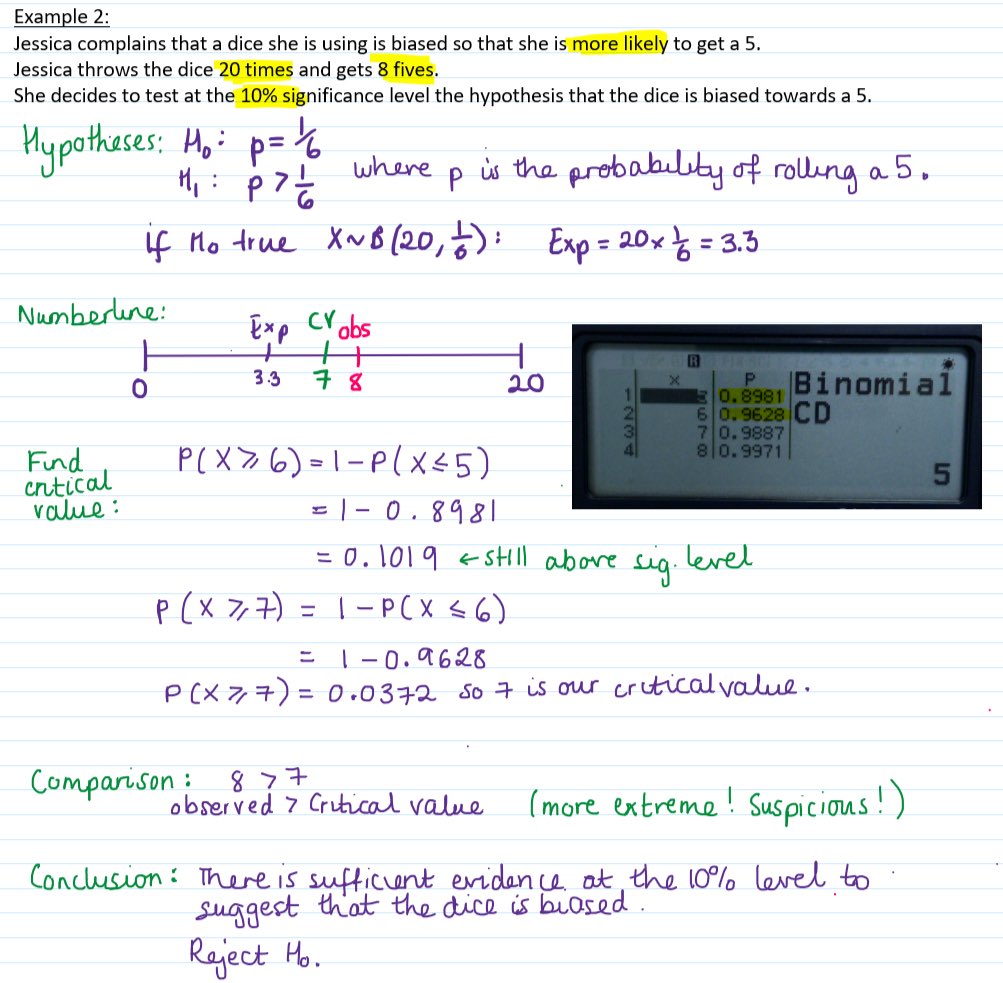 Example 2:
Jessica complains that a dice she is using is biased so that she is more likely to get a 5.
Jessica throws the dice 20 times and gets 8 fives.
She decides to test at the 10% significance level the hypothesis that the dice is biased towards a 5.
Hypotheses: H₀: p = 1/6
H₁: p > 1/6 where p is the probability of rolling a 5.
if H₀ true X~B(20, 1/6): Exp = 20 × 1/6 = 3.3
Numberline:
Exp CV obs
0 3.3 7 8 20
R
X P Binomial
1 5 0.8981 CD
2 6 0.9628
3 7 0.9887
4 8 0.9971
5
Find critical value: P(X ≥ 6) = 1 - P(X ≤ 5)
= 1 - 0.8981
= 0.1019 ← still above sig. level
P(X ≥ 7) = 1 - P(X ≤ 6)
= 1 - 0.9628
P(X ≥ 7) = 0.0372 so 7 is our critical value.
Comparison: 8 > 7
observed > Critical value (more extreme! Suspicious!)
Conclusion: There is sufficient evidence at the 10% level to
suggest that the dice is biased.
Reject H₀.